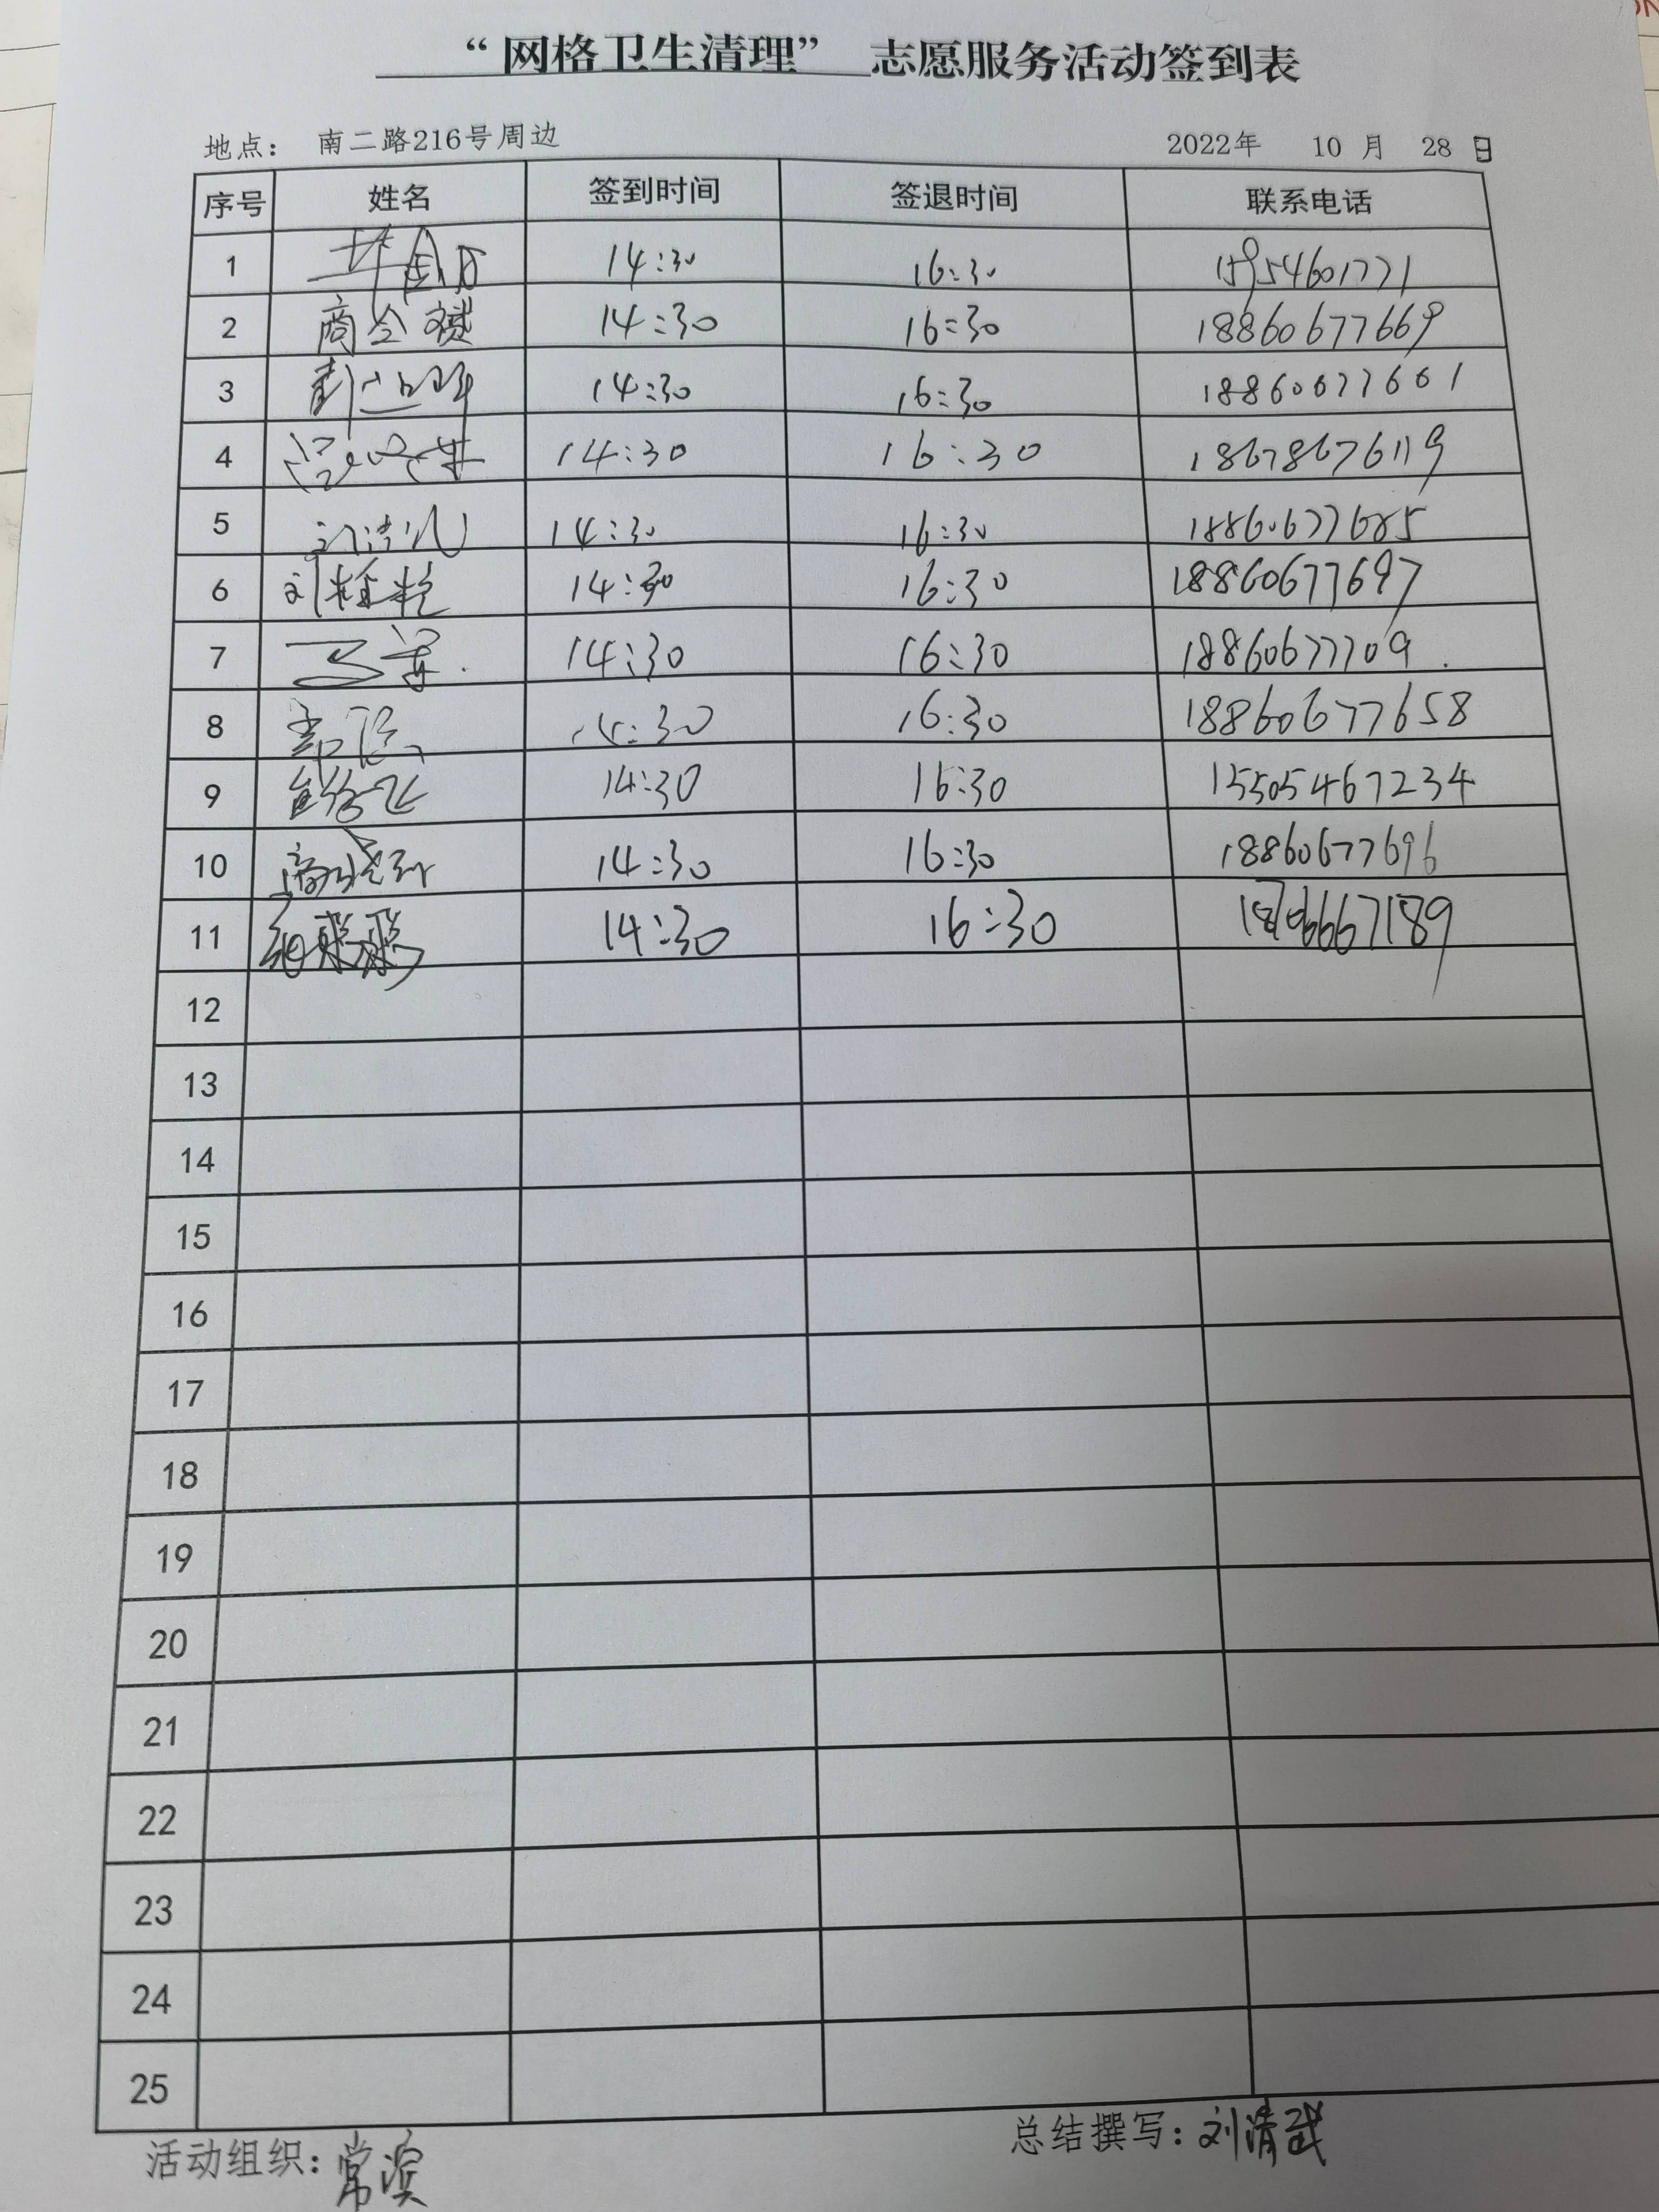 “网格卫生清理” 志愿服务活动签到表
地点： 南二路216号周边 2022年 10 月 28 日
序号 姓名 签到时间 签退时间 联系电话
1 14:30 16:30 15954601771
2 商全斌 14:30 16:30 18860677669
3 14:30 16:30 18860677661
4 14:30 16:30 18678676119
5 14:30 16:30 18860677685
6 刘栓柱 14:30 16:30 18860677697
7 14:30 16:30 18860677709
8 14:30 16:30 18860677658
9 14:30 16:30 15505467234
10 14:30 16:30 18860677696
11 14:30 16:30
12
13
14
15
16
17
18
19
20
21
22
23
24
25
活动组织：常滨 总结撰写：刘清武